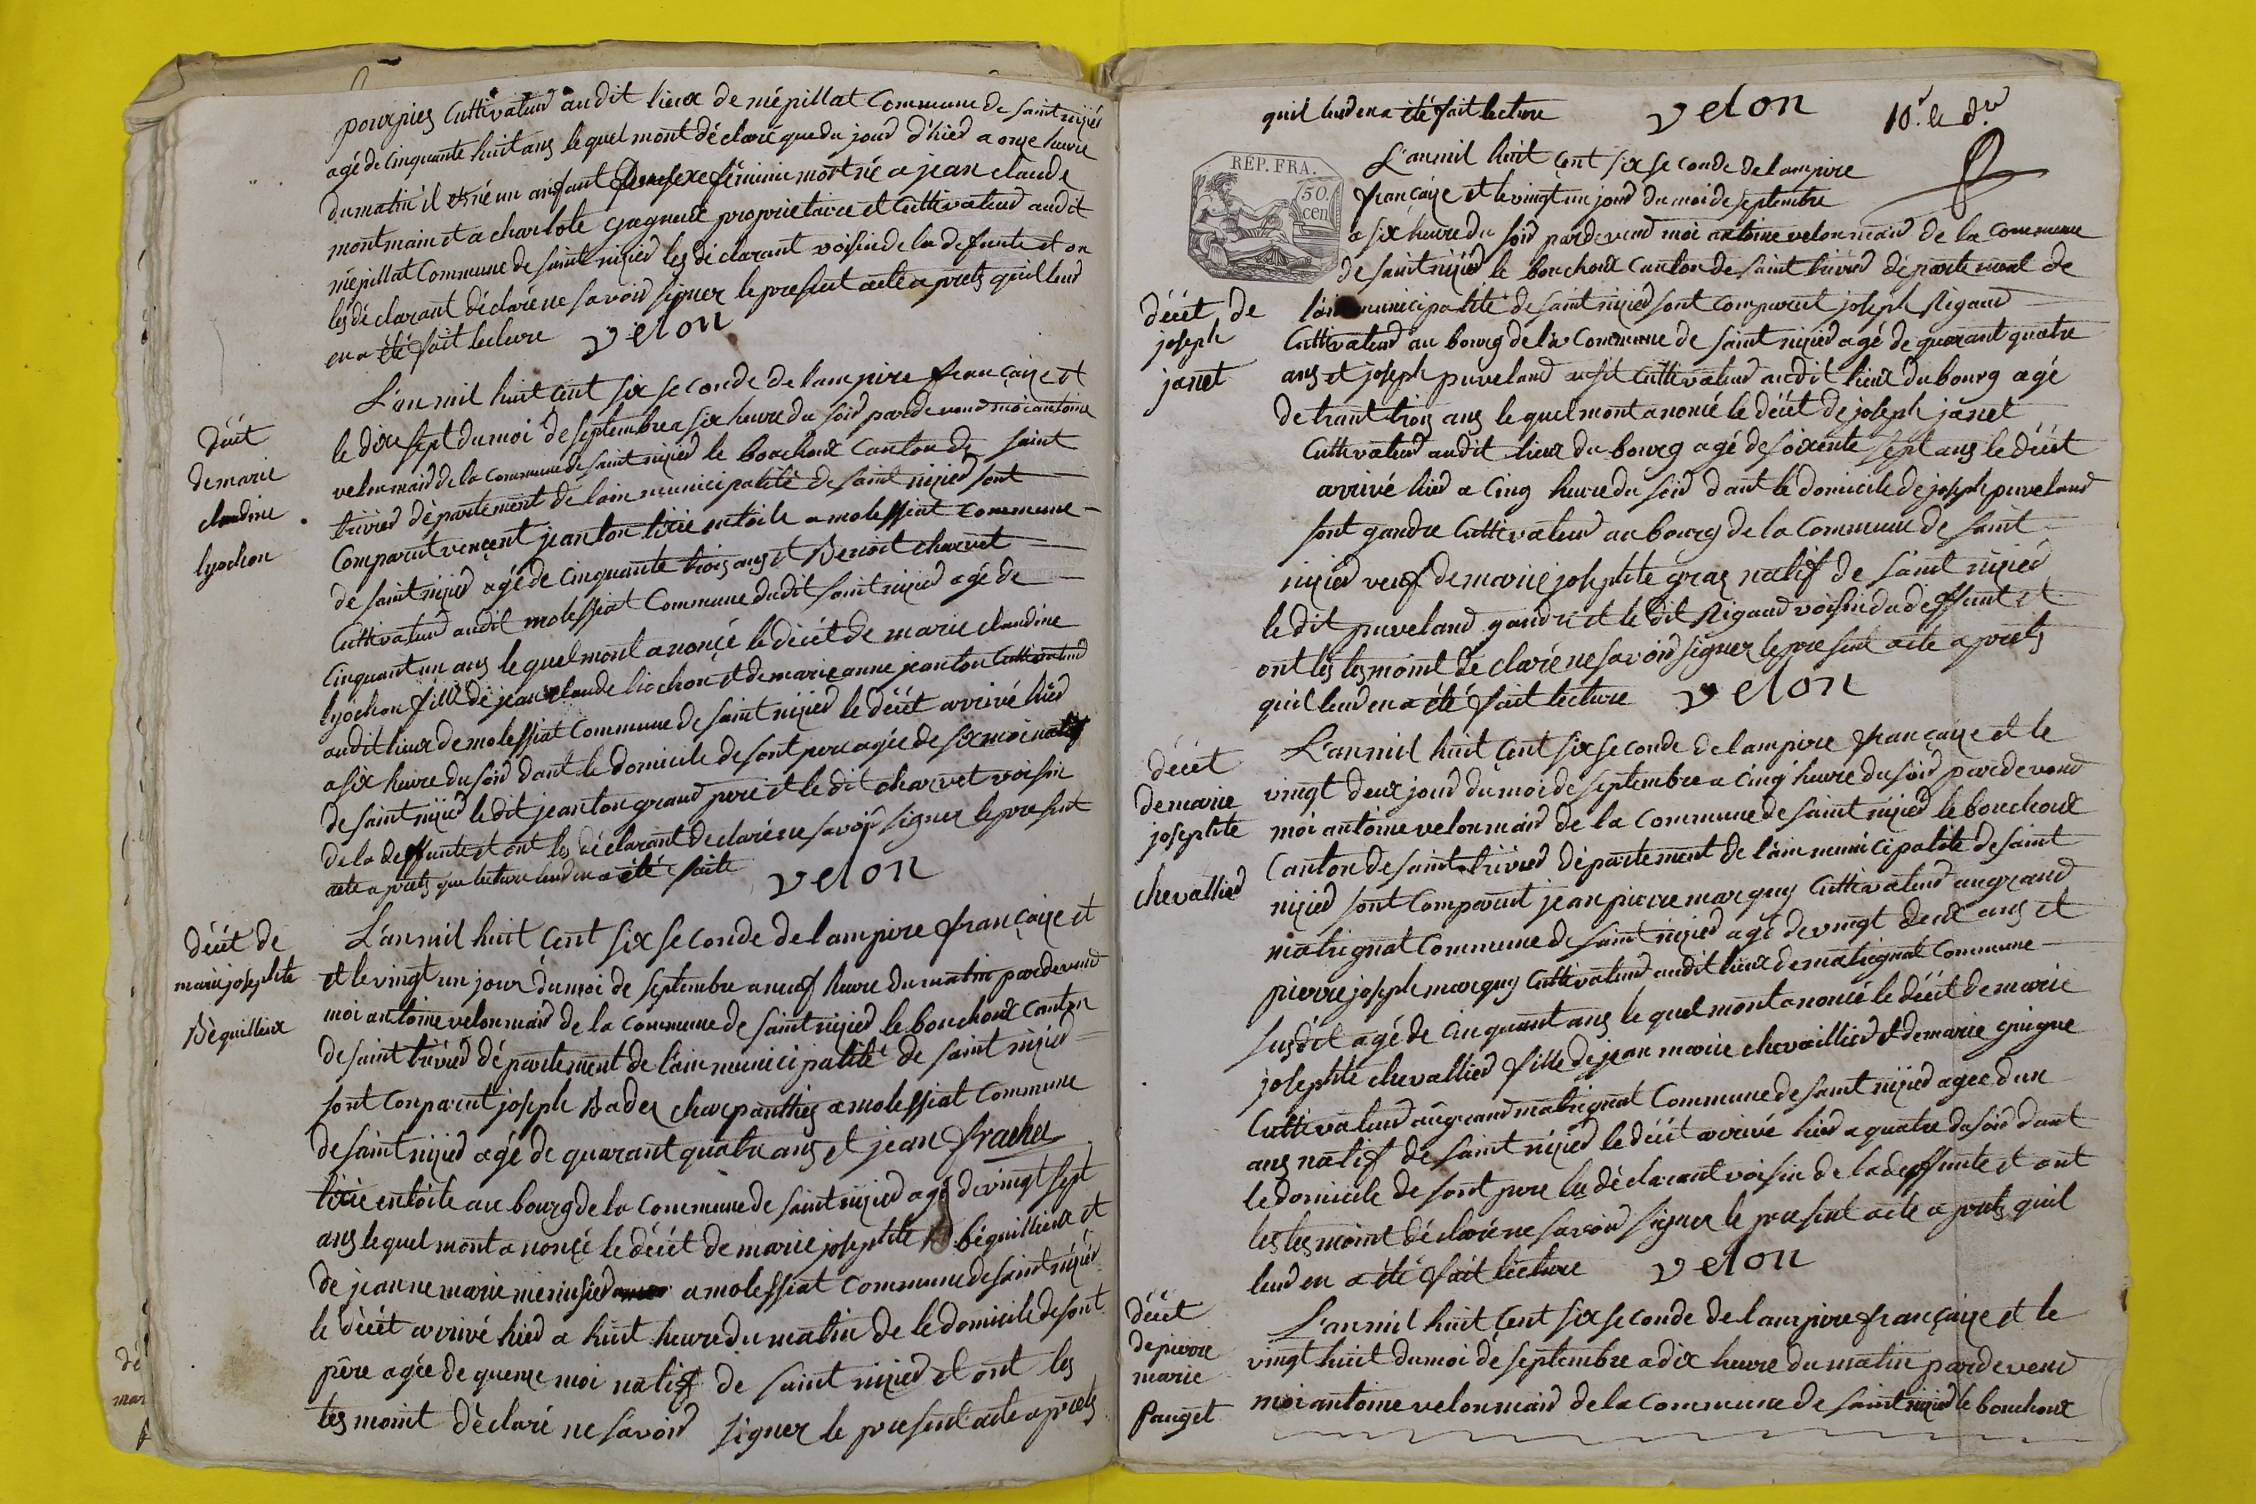 pourpiez Cuttivateur audit lieux de mépillat Commune de saint nizier
agé de Cinquante huit ans lequel mont déclaré que du jour d'hier a onze heure
du matin il est né un anfant du sexe féminin mort né a jean claude
montmain et a charlote gagneux proprietaire et Cuttivateur audit
mépillat Commune de saint nizier les déclarant voisin de la defunte et on
les déclarant déclaré ne savoir signer le present acte a prets quil leur
en a été fait lecture velon
décét
de marie
claudine
lyochon
L'an mil huit Cent six seconde de lampire française et
le dixe sept du moi de septembre a six heure du soir par de vend moi antoine
velon maire de la Commune de saint nizier le bouchoux Canton de saint
trivier département de lain municipalité de saint nizier sont
Comparut vençent jeanton tixie en toile a molessiat Commune
de saint nizier agé de Cinquante trois ans et Benoit charvet
Cuttivateur audit molessiat Commune dudit saint nizier agé de
Cinquant un ans lequel mont anonçé le décét de marie claudine
lyochon fille de jean claude liochon et de marie anne jeanton Cuttivateur
audit lieux de molessiat Commune de saint nizier le décét arrivé hier
a six heure du soir dant le domicile de sont pere agée de six moi natif
de saint nizier le dit jeanton grand pere et le dit charvet voisin
de la deffunte et ont les déclarant declaré ne savoir signer le present
acte a prets que lecture leur en a été faite velon
décét de
marie josephte
Béquilleux
L'an mil huit Cent six seconde de lampire française et
et le vingt un jour du moi de septembre a neuf heure du matin par devend
moi antoine velon maire de la Commune de saint nizier le bouchoux Canton
de saint trivier département de lain municipalité de saint nizier
sont Conparut joseph Badez charpanthiez a molessiat Commune
de saint nizier agé de quarant quatre ans et jean frachet
tixie en toile au bourg de la Commune de saint nizier agé de vingt sept
ans lequel mont anonçé le décét de marie josephte béquillieux et
de jeanne marie menusier a molessiat Commune de saint nizier
le décét arrivé hier a huit heure du matin de le domicile de sont
pére agée de quenze moi natif de saint nizier et ont les
tesmoint déclaré ne savoir signer le present acte a prets
quil leur en a été fait lecture velon
10.e le d.r
REP. FRA.
50. cen
L'an mil huit Cent six seconde de lampire
française et le vingt un jour du moi de septembre
a six heure du soir par devend moi antoine velon maire de la Commune
de saint nizier le bouchoux Canton de saint trivier département de
lain municipalité de saint nizier sont Comparut joseph Rigaud
décét de
joseph
janet
Cuttivateur au bourg de la Commune de saint nizier agé de quarant quatre
ans et joseph puveland ausit Cuttivateur audit lieux du bourg agé
de trant trois ans lequel mont anoncé le décét de joseph janet
Cuttivateur audit lieux du bourg agé de soixente sept ans le décét
arrivé hier a Cinq heure du soir dant le domicile de joseph puveland
sont gandre Cuttivateur au bourg de la Commune de saint
nizier veuf de marie josephte gras natif de saint nizier
le dit puveland gandre et le dit Rigaud voisin du deffunt et
ont les tesmoint déclaré ne savoir signer le present acte a prets
quil leur en a été fait lecture velon
décét
de marie
josephte
chevallier
L'an mil huit Cent six seconde de lampire française et le
vingt deux jour du moi de septembre a Cinq heure du soir par devend
moi antoine velon maire de la Commune de saint nizier le bouchoux
Canton de saint trivier département de lain municipalité de saint
nizier sont Comparut jean pierre marguy Cuttivateur au grand
matrignat Commune de saint nizier agé de vingt deux ans et
pierre joseph marguy Cuttivateur audit lieux de matrignat Commune
susdit agé de Cinquant ans lequel mont anoncé le décét de marie
josephte chevallier fille de jean marie chevallier et de marie guigue
Cuttivateur au grand matrignat Commune de saint nizier agée dun
ans natif de saint nizier le décét arrivé hier a quatre du soir dant
le domicile de sont pere les déclarant voisin de la deffunte et ont
les tesmoint déclaré ne savoir signer le present acte a prets quil
leur en a été fait lecture velon
décét
de pierre
marie
pauget
L'an mil huit Cent six seconde de lampire française et le
vingt huit du moi de septembre a dix heure du matin par devend
moi antoine velon maire de la Commune de saint nizier le bouchoux